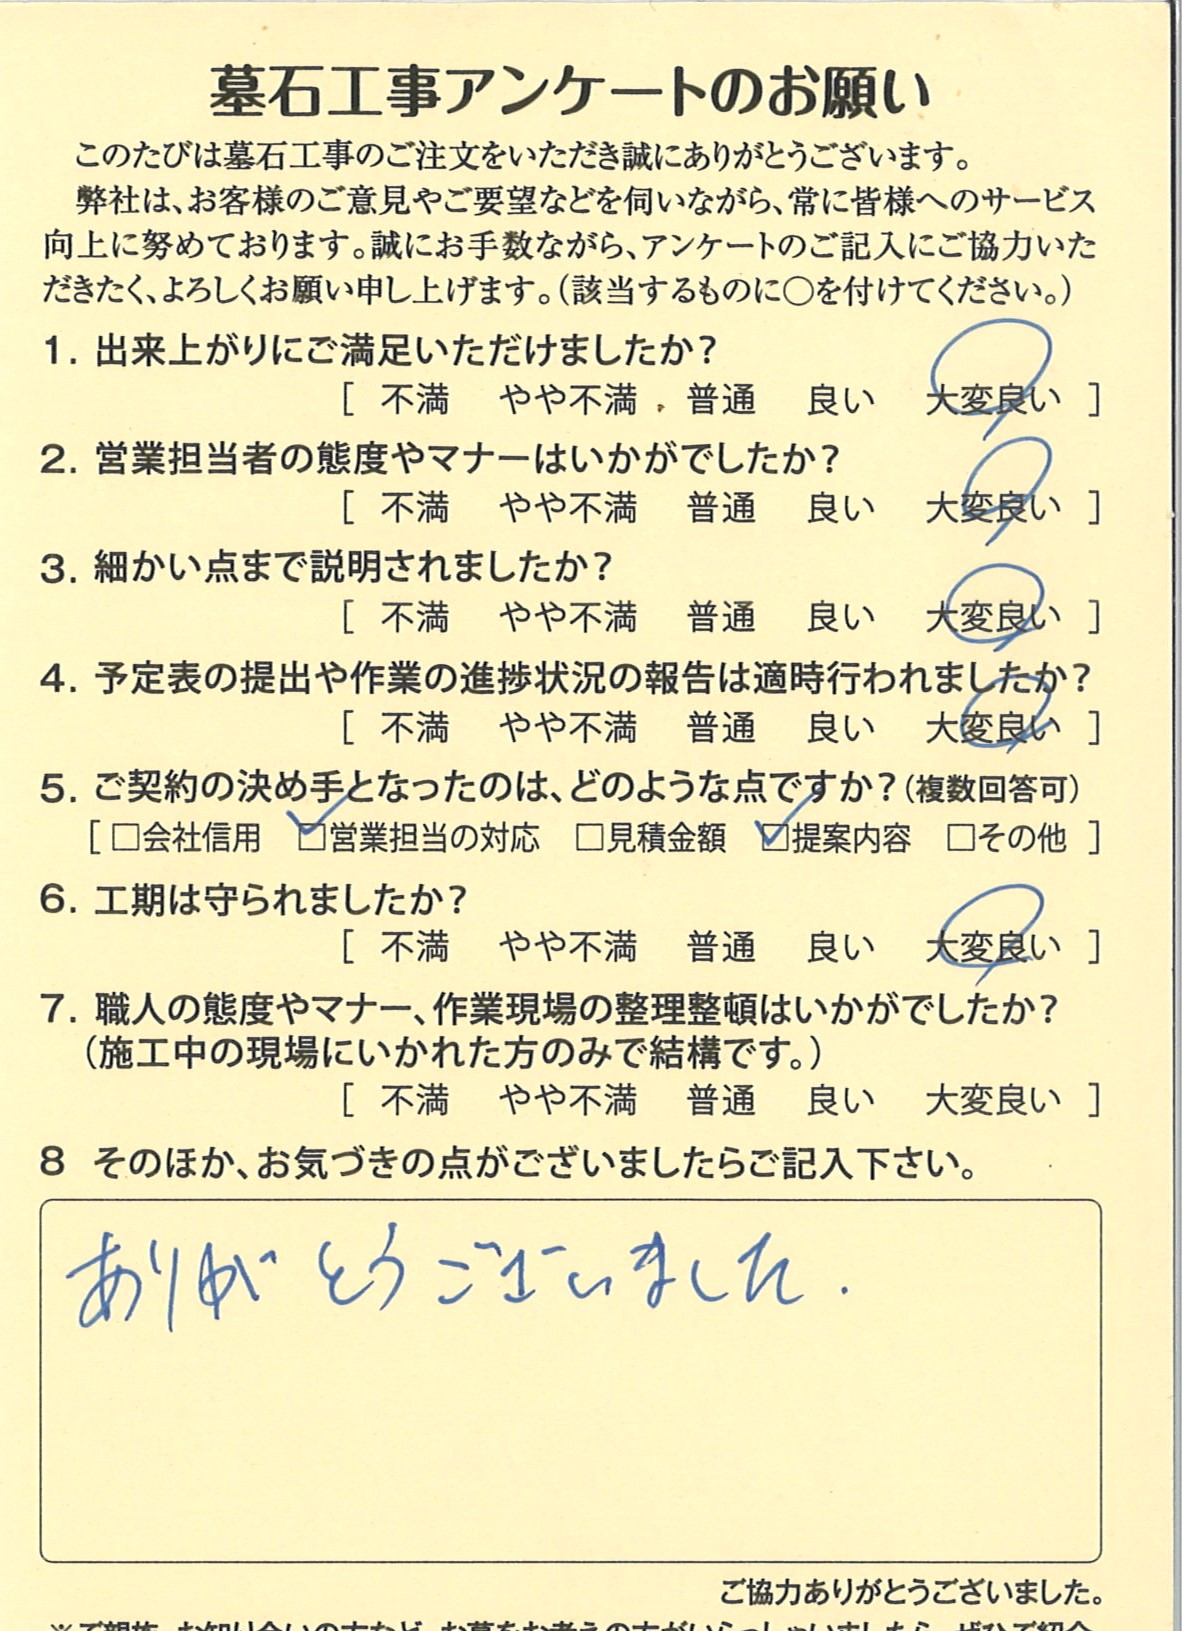 墓石工事アンケートのお願い
このたびは墓石工事のご注文をいただき誠にありがとうございます。
弊社は、お客様のご意見やご要望などを伺いながら、常に皆様へのサービス
向上に努めております。誠にお手数ながら、アンケートのご記入にご協力いた
だきたく、よろしくお願い申し上げます。(該当するものに○を付けてください。)
1. 出来上がりにご満足いただけましたか?
[ 不満 やや不満 普通 良い 大変良い ]
2. 営業担当者の態度やマナーはいかがでしたか?
[ 不満 やや不満 普通 良い 大変良い ]
3. 細かい点まで説明されましたか?
[ 不満 やや不満 普通 良い 大変良い ]
4. 予定表の提出や作業の進捗状況の報告は適時行われましたか?
[ 不満 やや不満 普通 良い 大変良い ]
5. ご契約の決め手となったのは、どのような点ですか?(複数回答可)
[ □会社信用 ☑営業担当の対応 □見積金額 ☑提案内容 □その他 ]
6. 工期は守られましたか?
[ 不満 やや不満 普通 良い 大変良い ]
7. 職人の態度やマナー、作業現場の整理整頓はいかがでしたか?
(施工中の現場にいかれた方のみで結構です。)
[ 不満 やや不満 普通 良い 大変良い ]
8 そのほか、お気づきの点がございましたらご記入下さい。
ありがとうございました.
ご協力ありがとうございました。
※ご親族、お知り合いの方など、お墓をお考えの方がいらっしゃいましたら、ぜひご紹介